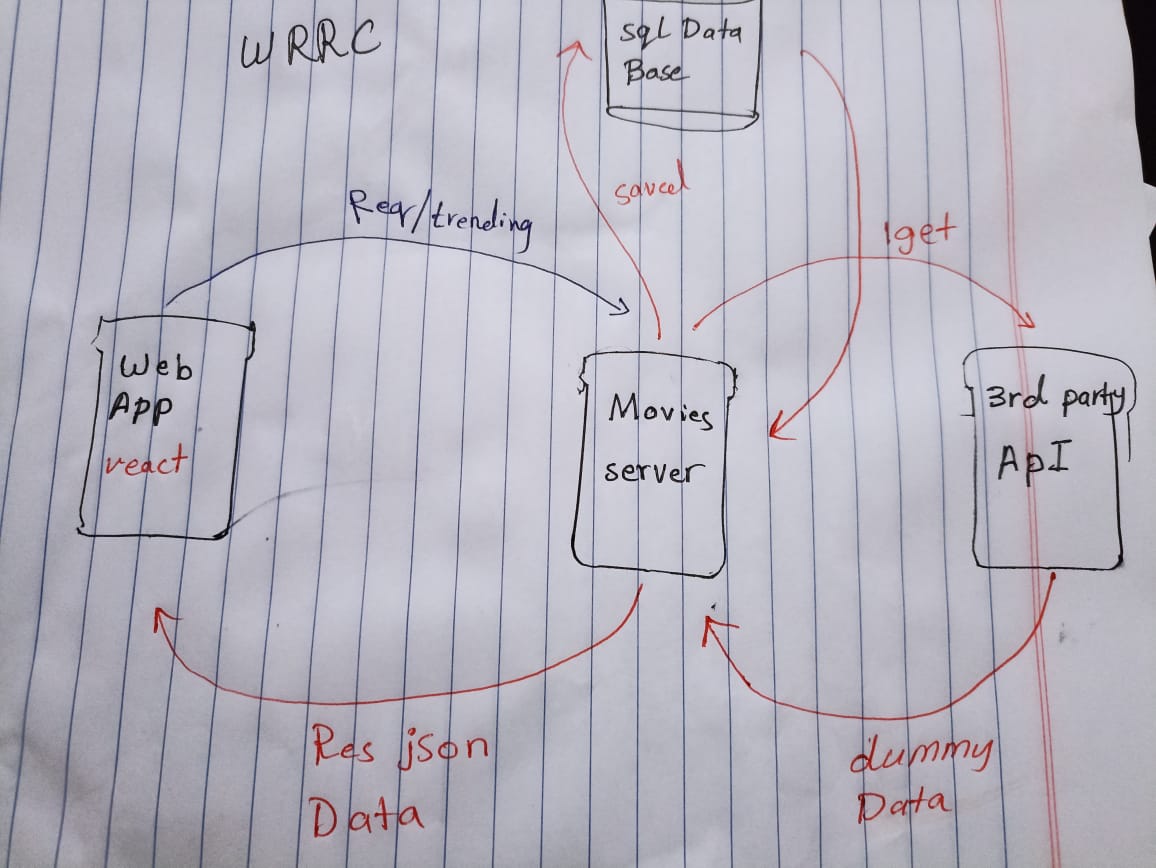 WRRC
sql Data
Base
saved
Req/trending
1get
Web
App
react
Movies
server
3rd party
ApI
Res json
Data
dummy
Data